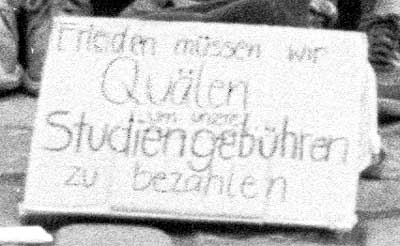 Frieden müssen wir
Quälen
um unsere
Studiengebühren
zu bezahlen